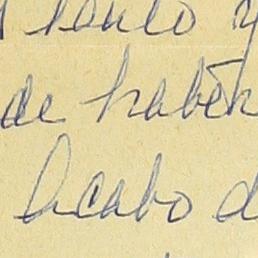 tanto y
de habér
Acabo d